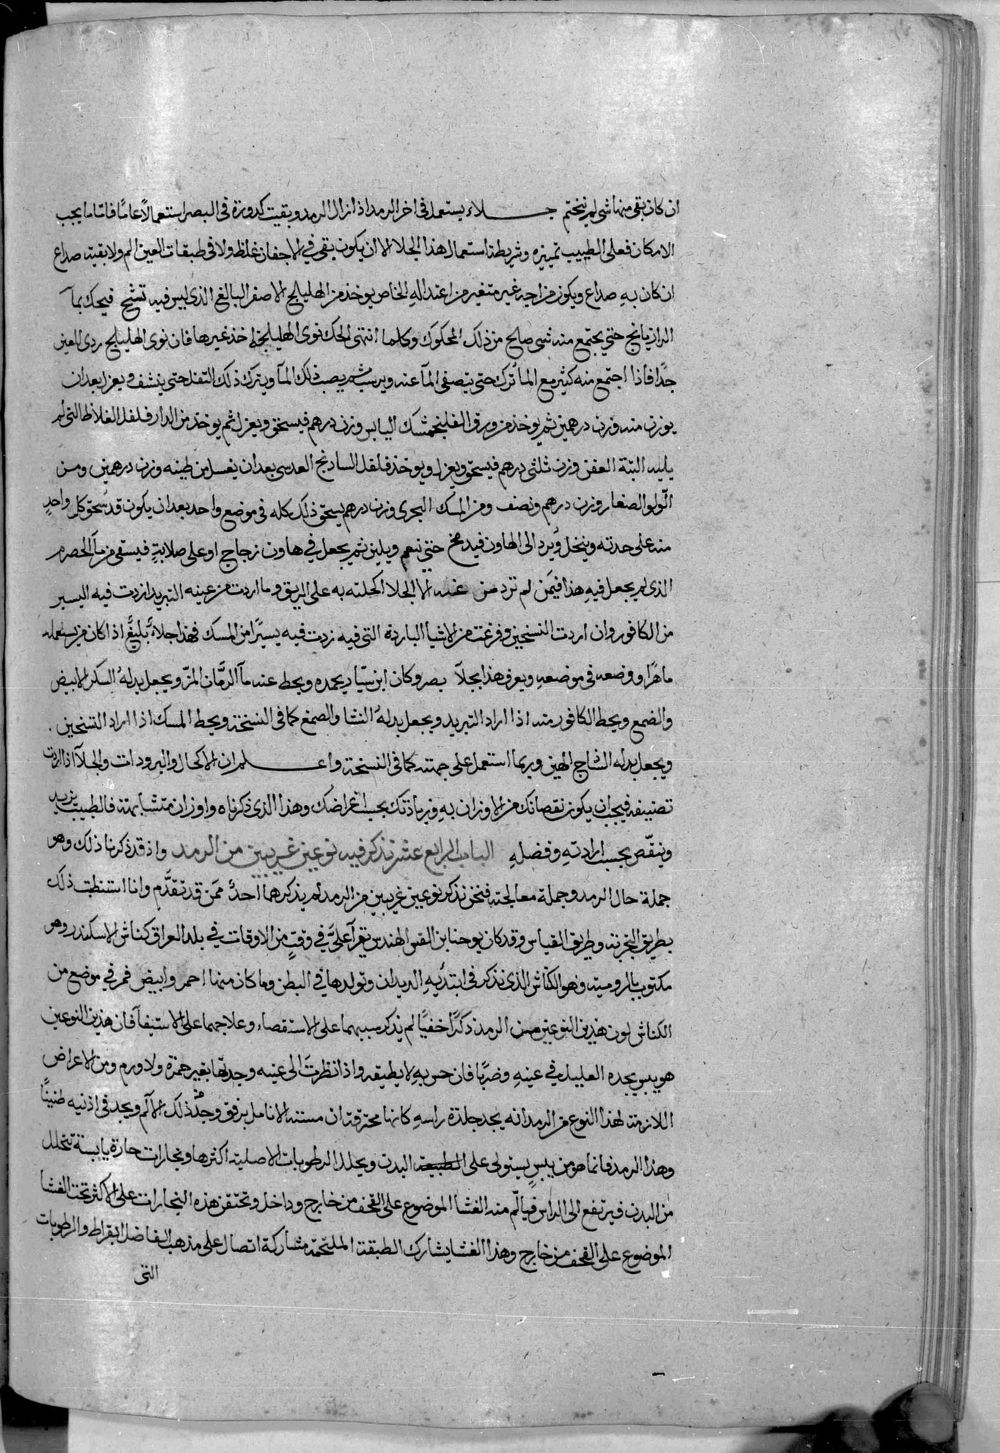 ان كان بقى منها شى لم يختم جلاء يستعمل فى اخر الرمد اذا زال الرمد وبقيت كدورة فى البصر استعمالاً عامًا فاما ما يجب
الامكان فعلى الطبيب تمييزه وشريطة استعمال هذا الجلا الا ان يكون بقى فى الاجفان غلظ ولا فى طبقات العين الم ولا بقية صداع
ان كان به صداع ويكون مزاجه غير متغير من اعتداله الخاص يوخذ من الهليلج الاصفر البالغ الذى ليس فيه تشنج فيحك بماء
الرازيانج حتى يجتمع منه شى صالح من ذلك المحكوك وكلما انتهى الحك نوى الهليلجة اخذ غيرها فان نوى الهليلج ردى للعين
جدًا فاذا اجتمع منه كثير مع الماء ترك حتى يتصفى الماء عنه ويرسب ثم يصب ذلك الماء ويترك ذلك الثفل حتى ينشف ويعزل بعد ان
يوزن منه وزن درهمين ثم يوخذ من ورق الفلنجمشك اليابس وزن درهم فيسحق ويعزل ثم يوخذ من الدار فلفل الغلاظ التى لم
يليه البتة العفن وزن ثلثى درهم فيسحق ويعزل ويوخذ فلقل السادنج العدسى بعد ان يغسل من طينه وزن درهمين ومن
اللولو الصغار وزن درهم ونصف ومن المسك البحرى وزن درهم يسحق ذلك كله فى موضع واحد بعد ان يكون قد سُحق كل واحدٍ
منه على حدته وينخل ويُرد الى الهاون فيدمخ حتى ينعم ويلين ثم يجعل فى هاون زجاج او على صلابةٍ فيسقى من ماء الحصرم
الذى لم يجعل فيه هذا فيمَن لم ترد من عنه الا الجلا اكحلته به على الريق وما اردت من عينه التبريد زدت فيه اليسير
من الكافور وان اردت التسخين وفرغت من الاشيا الباردة التى فيه زدت فيه يسيرًا من المسك فهذا جلاءٌ بليغٌ اذا كان من يستعمله
ماهرًا ووضعه فى موضعه ويعرف هذا بجلاء بصرو كان ابن سيار يحمده ويحط عنه ماء الرمان المز ويجعل بدلهُ السكر الابيض
والصمغ ويحط الكافور منه اذا اراد التبريد ويجعل بدلهُ النشا والصمغ كما فى النسخة ويحط المسك اذا اراد التسخين
ويجعل بدله الساذج الهين وربما استعمل على جهته كما فى النسخة واعلم ان الاكحال والبرودات والجلاء اذا اردت
تصنيفه فيجب ان يكون نقصانك من الاوزان به وزيادتك بحسب اغراضك وهذا الذى ذكرناه واوزان متشابهة فالطبيب يزيد
وينقص بحسب ارادته وفضله الباب الرابع عشر نذكر فيه نوعين غريبين من الرمد واذ قد ذكرنا ذلك وهو
جملة حال الرمد وجملة معالجته فنحن نذكر نوعين غريبين من الرمد لم يذكرهما احدٌ ممن قد تقدّم وانا استنطبت ذلك
بطريق التجربة وطريق القياس وقد كان يوحنا ابن القس الهندس يقرأ علىَّ فى وقتٍ من الاوقات فى بلد العراق كناش الاسكندر وهو
مكتوب بالرومية وهو الكناش الذى نذكر فى ابتدائه الديدان وتولدها فى البطن وما كان منها احمر وابيض فمر فى موضع من
الكناش لون هذين النوعين من الرمد ذكرًا خفيًا لم يذكر سببهما على الاستقصاء وعلاجهما على الاستيفاء فان هذين النوعين
هو يبس يجده العليل فى عينه وضربًا فان حس به لا يطيقه واذا نظرتَ الى عينه وجدتها بغير حمرة ولا ورم ومن الاعراض
اللازمة لهذا النوع من الرمد انه يجد جلدة راسه كانها محترقة ان مسته الانامل برفق وجدَ ذلك الالم ويجد فى اذنيه طنينًا
وهذا الرمد فانما هو من يبسٍ يستولى على الطبيعة البدن ويحلل الرطوبات الاصلية اكثرها وبخارات حارة يابسة تتحلل
من البدن فيرتفع الى الراس فيالّم منه الغشا الموضوع على القحف من خارج وداخل وتحتقن هذه البخارات على الاكثر تحت الغشا
الموضوع على القحف من خارج وهذا الغشا يشارك الطبقة الملتحمة مشاركة اتصال على مذهب الفاضل ابقراط والرطوبات
التى